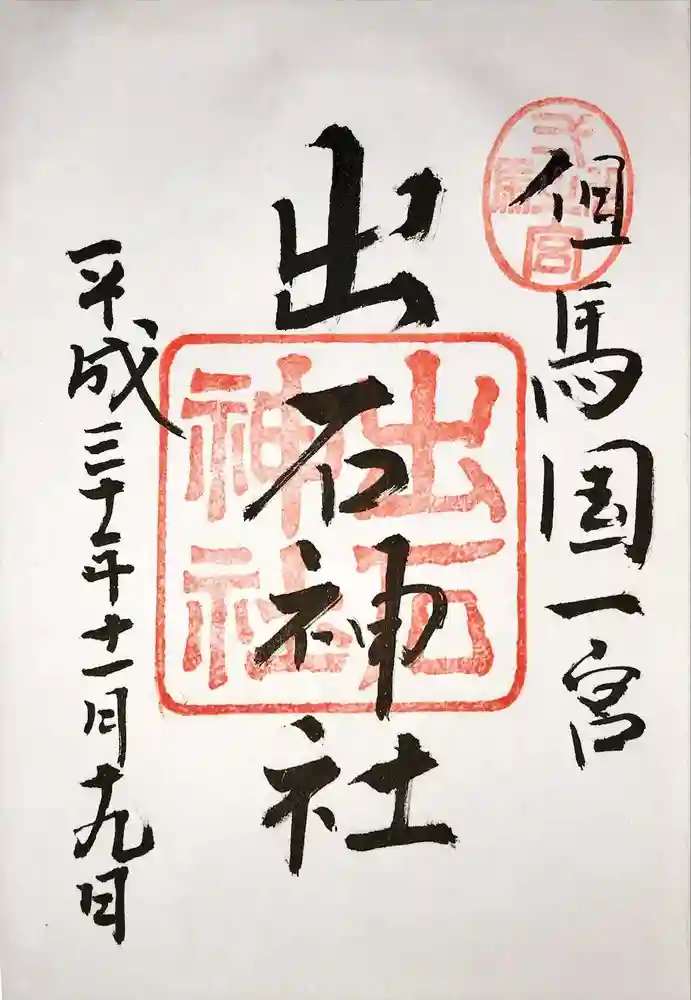 但馬国一宮
出石神社
出石
神社
平成三十年十一月十九日